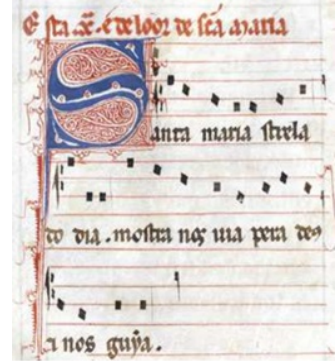 Esta .xe. é de loor de scã maria
Santa maria strela
do dia . mostra nos uia pera deus
e nos guỹa .